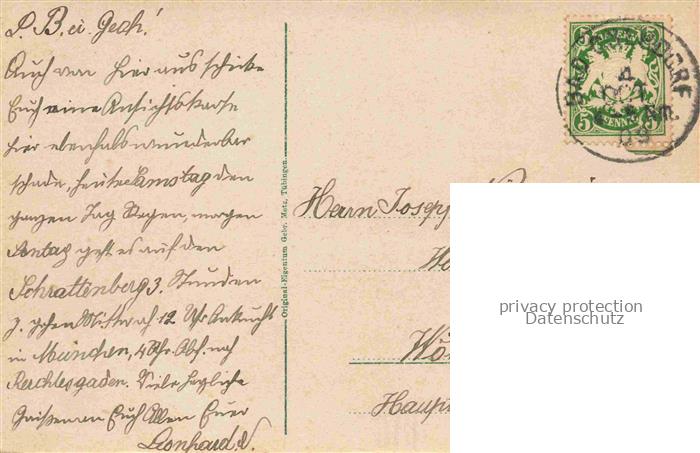 L. B. ei Gesch!
Auch von hier aus schicke
Euch eine Ansichtskarte
hier ebenfalls wunderbar
schade, heute Samstag den
ganzen Tag Regen, morgen
Sontag geht es auf den
Schrattenberg 3. Stunden
z. gehen Mittwoch 12 Uhr Ankunft
in München, 4 Uhr Abf. nach
Berchtesgaden. Viele herzliche
Grüße an Euch Allen Euer
Leonhard. V.
Original-Eigentum Gebr. Metz, Tübingen.
BAYERN
5 5
PFENNIG
BAD
DORF
4
OCT
09
Herrn Josep
Haup
privacy protection
Datenschutz